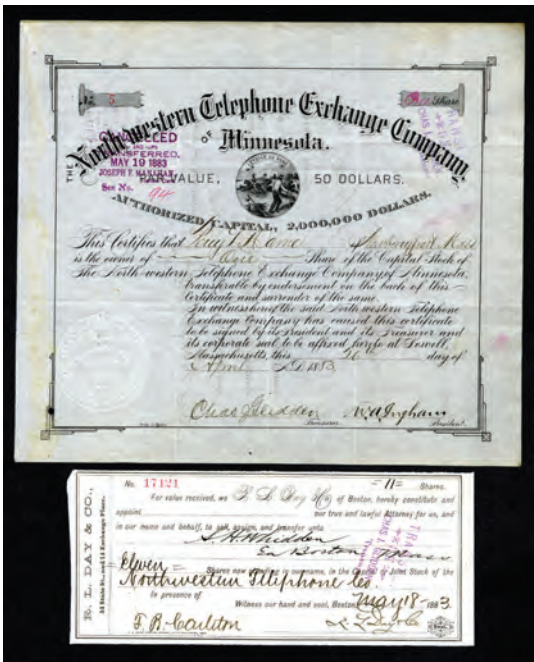 No. 5
One Share
THE
North-western Telephone Exchange Company,
of
Minnesota.
CANCELLED
TRANSFERRED.
MAY 19 1883
JOSEPH F. MANAHAN,
See No. 94
PAR VALUE, 50 DOLLARS.
AUTHORIZED CAPITAL, 2,000,000 DOLLARS.
This Certifies that of Mass
is the owner of One Share of the Capital Stock of
The North-western Telephone Exchange Company of Minnesota,
transferable by endorsement on the back of this
Certificate and surrender of the same.
In witness whereof the said North-western Telephone
Exchange Company has caused this certificate
to be signed by its President and its Treasurer and
its corporate seal to be affixed hereto at Lowell,
Massachusetts, this 26 day of
April A.D. 1883
Chas J Glidden W. A. Ingham
Treasurer. President.
R. L. DAY & CO.,
No. 17121 = 11 = Shares.
For value received, we R. L. Day & Co of Boston, hereby constitute and
appoint our true and lawful Attorney for us, and
in our name and behalf, to sell, assign, and transfer unto
S. H. Whidden
Boston Mass
Eleven = Shares now standing in our name, in the Capital or Joint Stock of the
Northwestern Telephone Co.
In presence of
Witness our hand and seal, Boston, May 18 - 1883
F. B. Carlton R. L. Day & Co